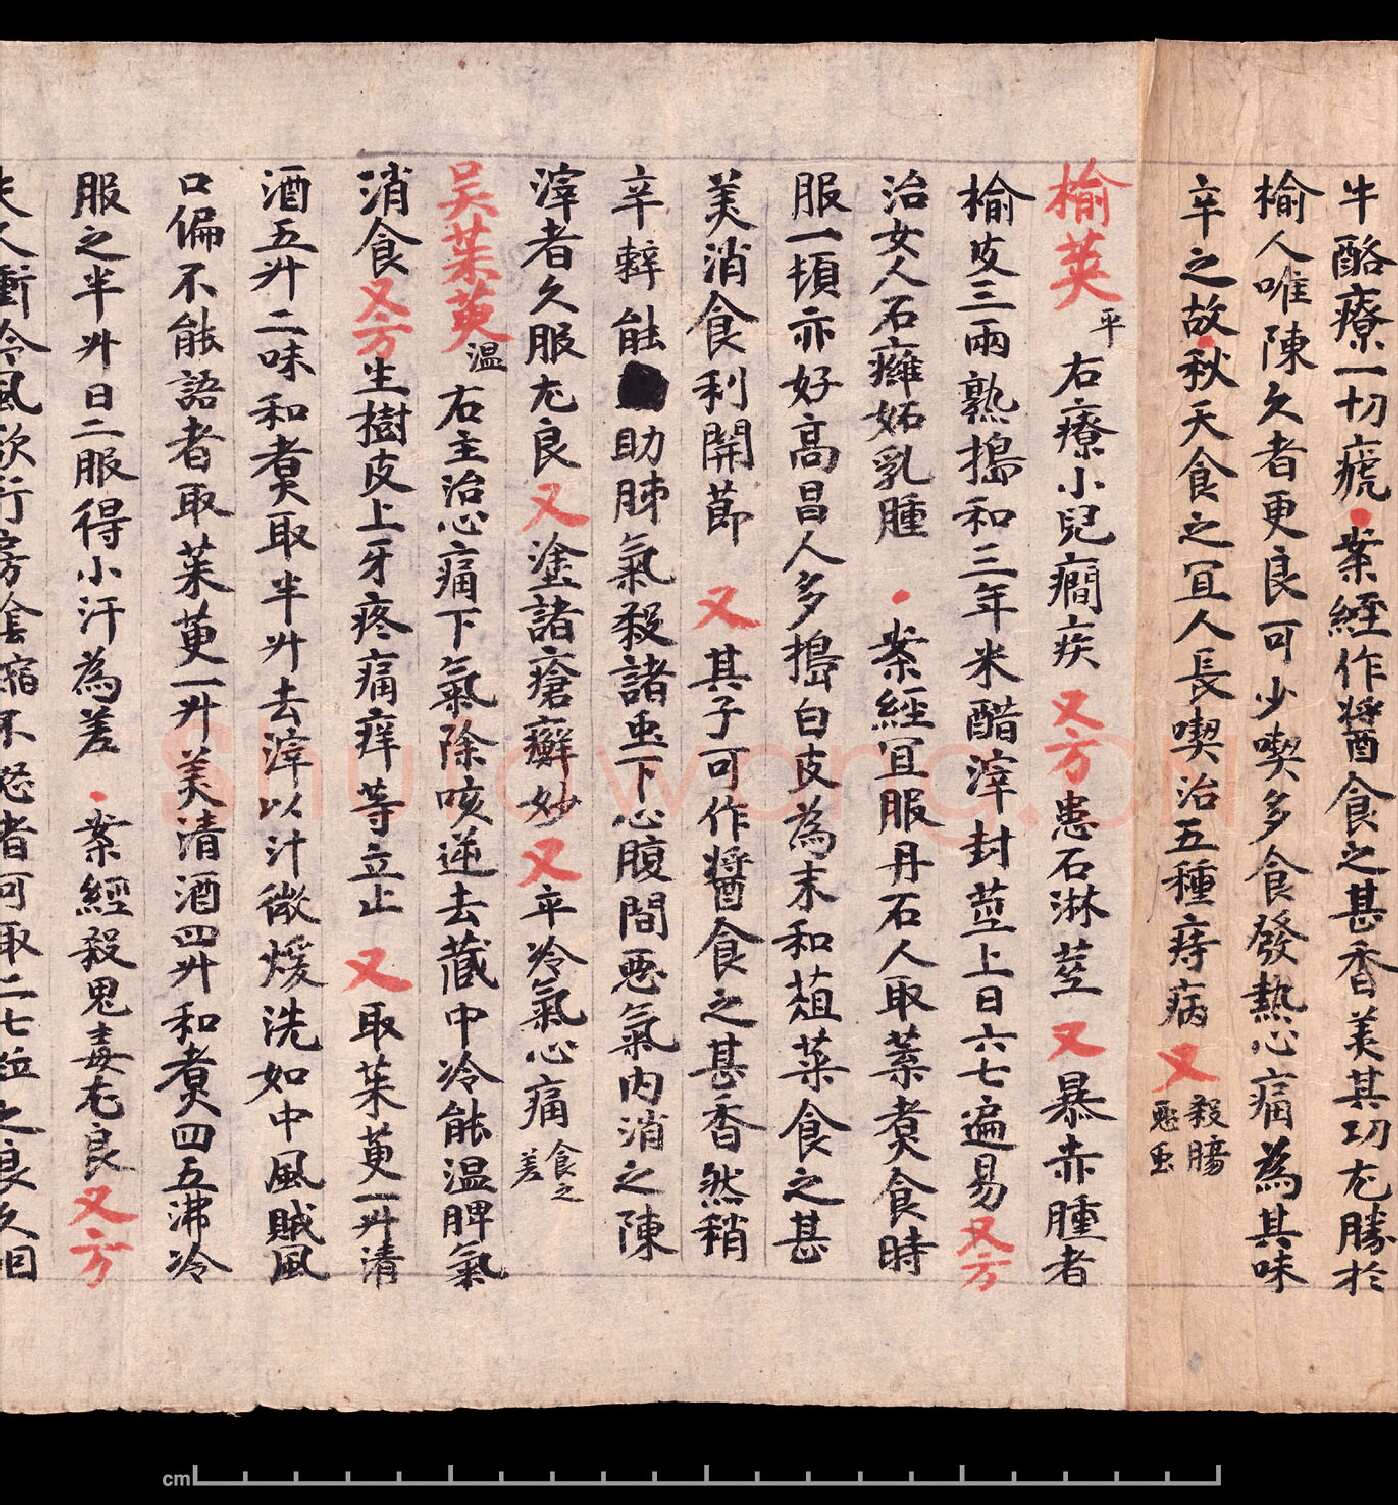 牛酪療一切瘡案經作醬食之甚香美其功尤勝於
榆人唯陳久者更良可少喫多食發熱心痛為其味
辛之故秋天食之冝人長喫治五種痔病又殺腸惡虫
榆莢平右療小兒癇疾又方患石淋莖又暴赤腫者
榆皮三兩熟搗和三年米醋滓封莖上日六七遍易又方
治女人石癰妬乳腫案經冝服丹石人取葉煮食時
服一頓亦好高昌人多搗白皮為末和葅菜食之甚
美消食利開節又其子可作醬食之甚香然稍
辛辣能助肺氣殺諸虫下心腹間惡氣內消之陳
滓者久服尤良又塗諸瘡癬妙又卒冷氣心痛食之差
吴茱萸溫右主治心痛下氣除咳逆去蔵中冷能温脾氣
消食又方生樹皮上牙疼痛痒等立止又取茱萸一升清
酒五升二味和煑取半升去滓以汁微煖洗如中風賊風
口偏不能語者取茱萸一升美清酒四升和煑四五沸冷
服之半升日二服得小汗為差案經殺鬼毒尤良又方
夫人衝冷風欲行房陰縮不怒者可取二七粒之良久咽
cm